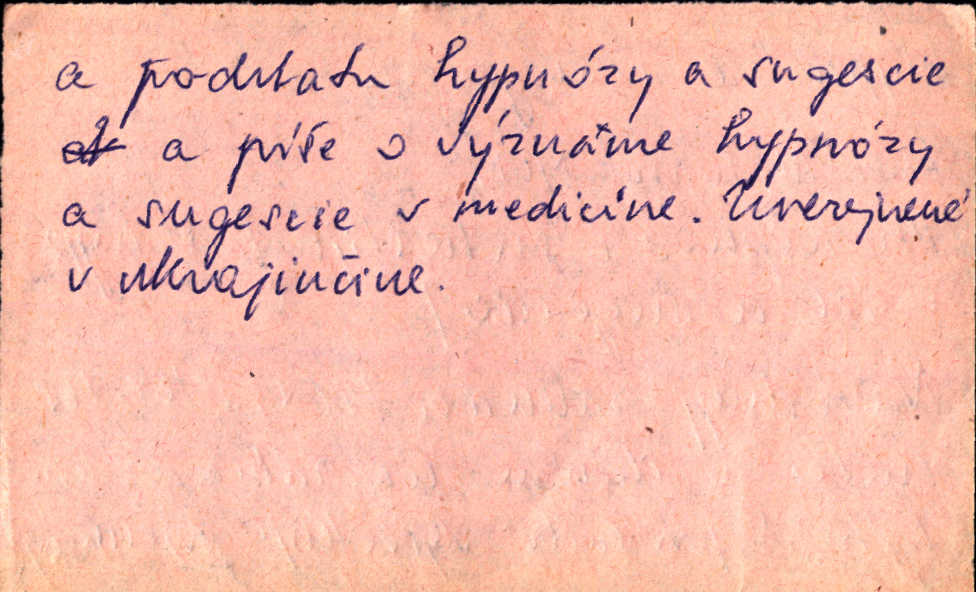 a podstatu hypnózy a sugescie
a píše o význame hypnózy
a sugescie v medicíne. Uverejnené
v ukrajinčine.